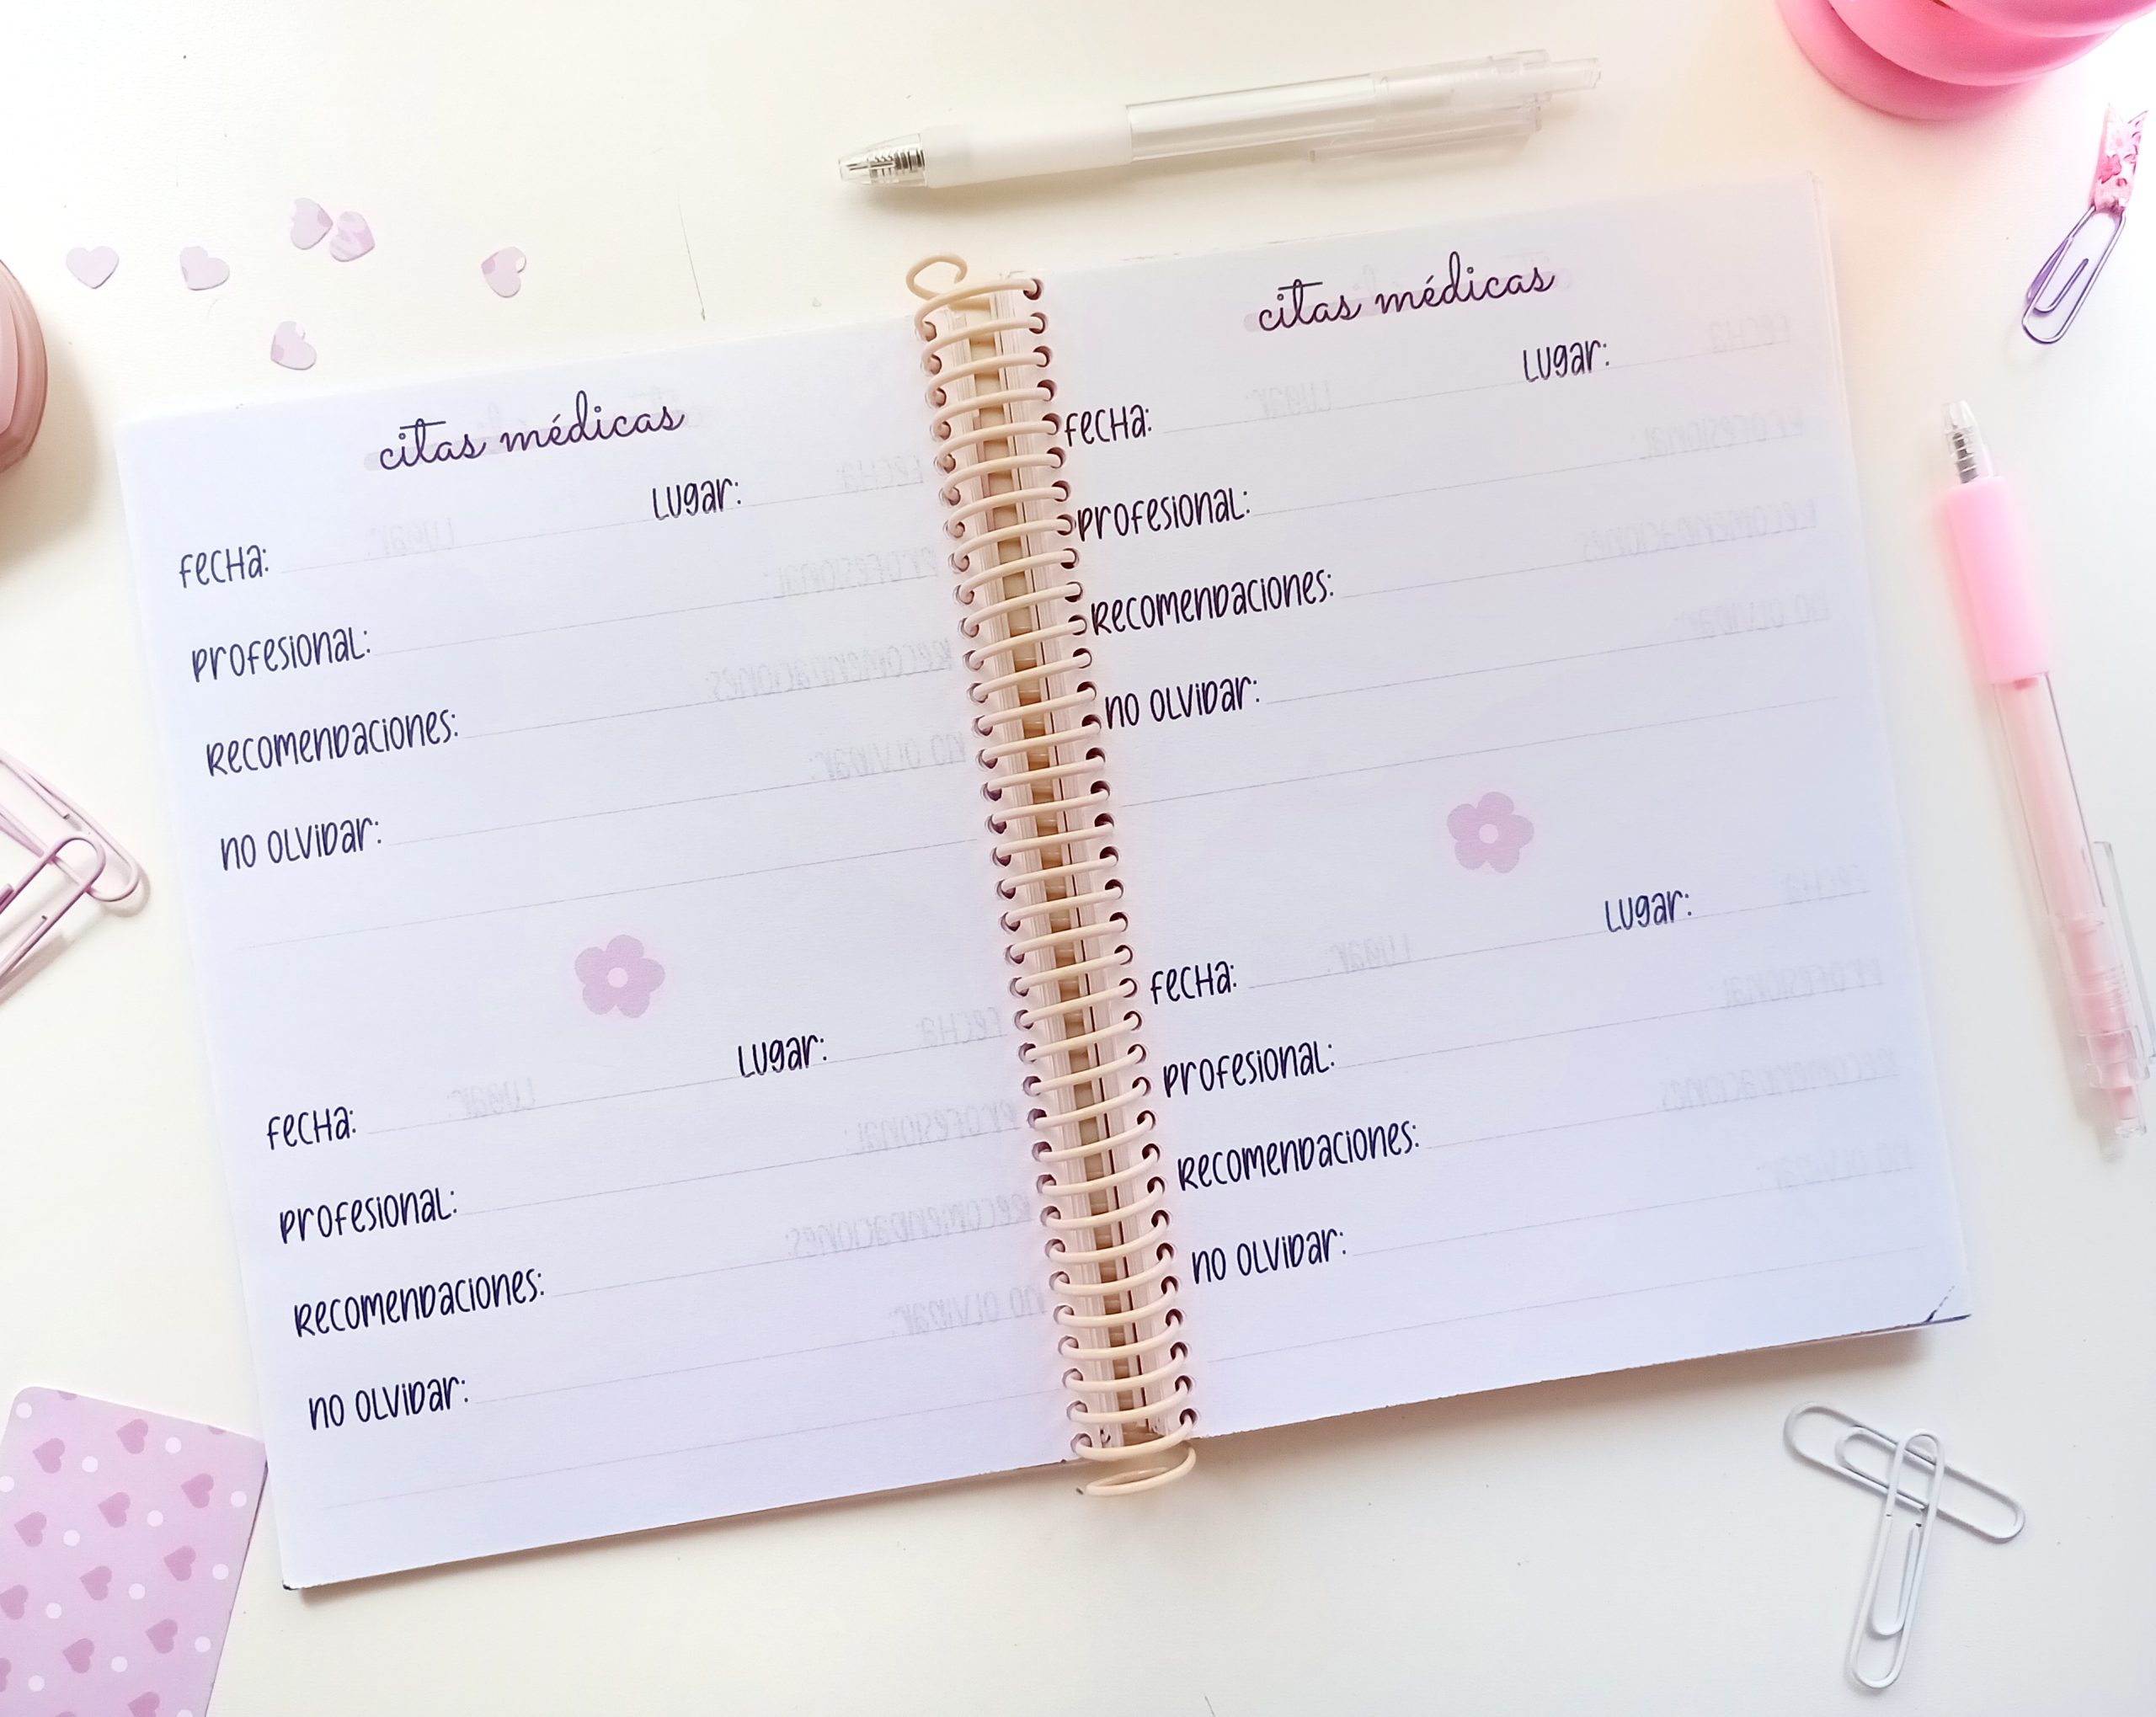 citas médicas
FecHa: Lugar:
Profesional:
Recomendaciones:
no olvidar:
FecHa: Lugar:
Profesional:
Recomendaciones:
no olvidar:
citas médicas
FecHa: Lugar:
Profesional:
Recomendaciones:
no olvidar:
FecHa: Lugar:
Profesional:
Recomendaciones:
no olvidar: